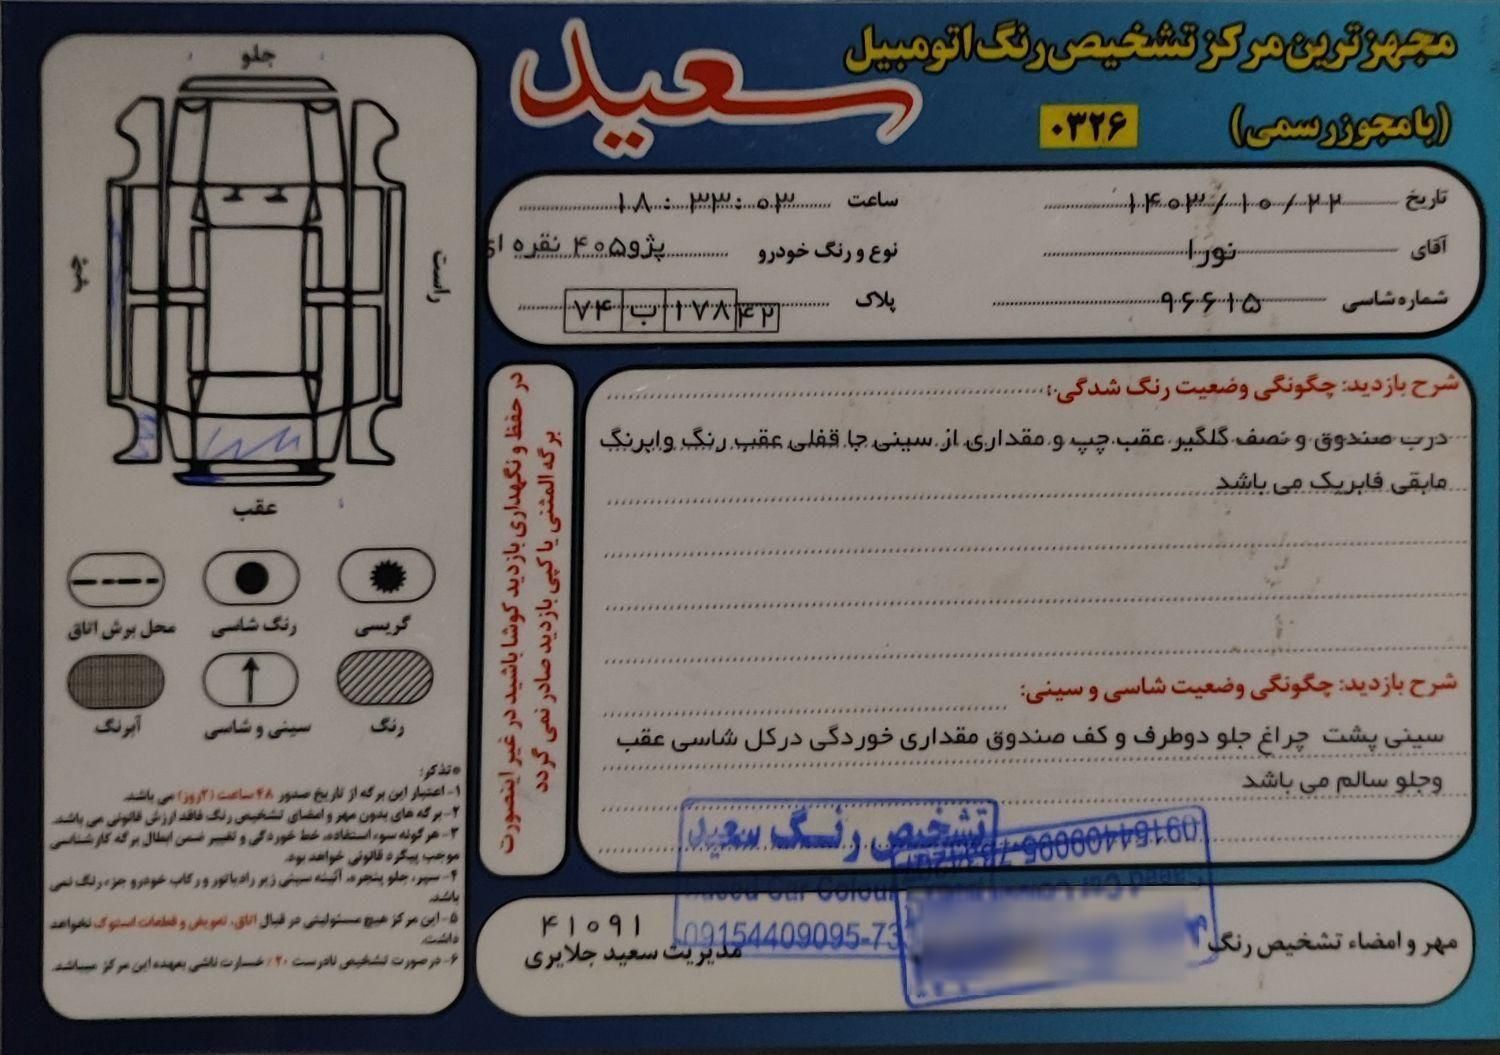 مجهزترین مرکز تشخیص رنگ اتومبیل
سعید
(با مجوز رسمی)
۰۳۲۶
تاریخ ۱۴۰۳/۱۰/۲۲
ساعت ۱۸:۳۳:۰۳
آقای نورا
نوع و رنگ خودرو پژو۴۰۵ نقره ای
شماره شاسی ۹۶۶۱۵
پلاک ۷۴ ب ۱۷۸ ۴۲
شرح بازدید: چگونگی وضعیت رنگ شدگی:
درب صندوق و نصف گلگیر عقب چپ و مقداری از سینی جا قفلی عقب رنگ وابرنگ
مابقی فابریک می باشد
شرح بازدید: چگونگی وضعیت شاسی و سینی:
سینی پشت چراغ جلو دوطرف و کف صندوق مقداری خوردگی درکل شاسی عقب
وجلو سالم می باشد
مهر و امضاء تشخیص رنگ
۴۱۰۹۱
مدیریت سعید جلایری
تشخیص رنگ سعید
Saeed Car Colour
09154409095-73
09154409095-73
در حفظ و نگهداری بازدید کوشا باشید در غیر اینصورت
برگه المثنی یا کپی بازدید صادر نمی گردد
جلو
راست
چپ
عقب
گریسی
رنگ شاسی
محل برش اتاق
رنگ
سینی و شاسی
آبرنگ
*تذکر:
۱- اعتبار این برگه از تاریخ صدور ۴۸ ساعت (۲روز) می باشد.
۲- برگه های بدون مهر و امضای تشخیص رنگ فاقد ارزش قانونی می باشد.
۳- هرگونه سوء استفاده، خط خوردگی و تغییر ضمن ابطال برگه کارشناسی
موجب پیگرد قانونی خواهد بود.
۴- سپر، جلو پنجره، آئینه سینی زیر رادیاتور و رکاب خودرو جزء رنگ نمی
باشد.
۵- این مرکز هیچ مسئولیتی در قبال اتاق، تعویض و قطعات استوک نخواهد
داشت.
۶- در صورت تشخیص نادرست ۲۰٪ خسارت ناشی بعهده این مرکز میباشد.